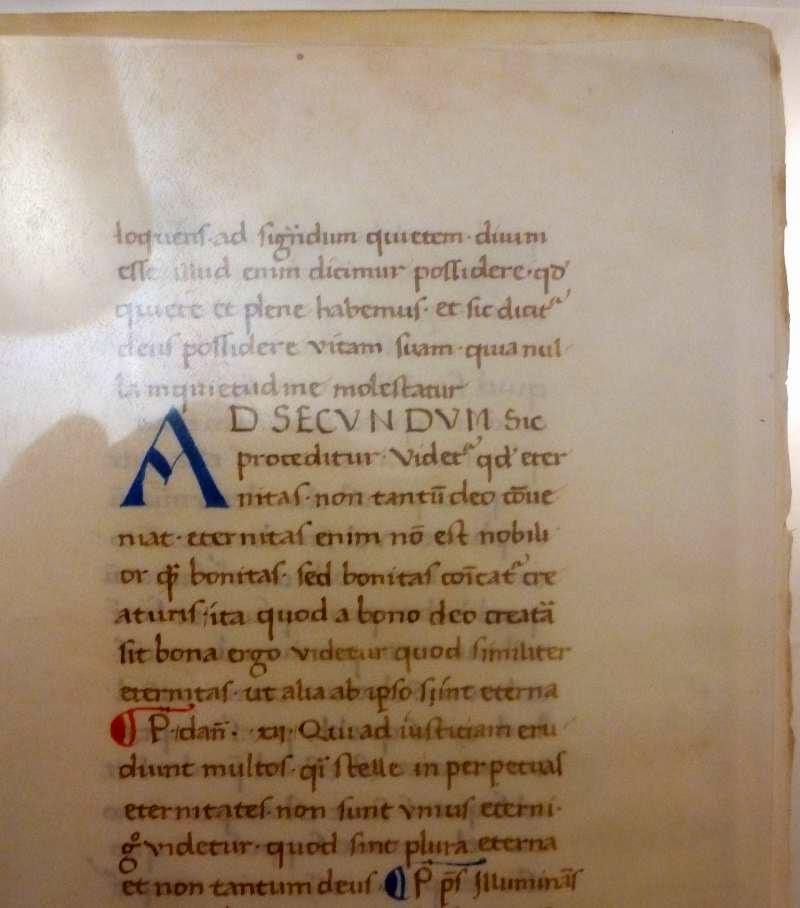 loquens·ad signⁱdum quietem·diuini
esse illud enim dicimur possidere·qd'
quiete et plene habemus· et sic dicitᵘ
deus possidere vitam suam·quia nul
la inquietudine molestatur
AD SECVNDVM Sic
proceditur· Videtᵘ qd' eter
nitas·non tantū deo cōue
niat·eternitas enim nō est nobili
or qᵃ̄ bonitas· sed bonitas cōīcatᵘ cre
aturis·ita quod a bono deo creatā
sit bona ergo videtur quod similiter
eternitas·ut alia ab ip̄so sint eterna
¶ P̄·dan̄·xii·Qui ad iusticiam eru
diunt multos·qī stelle in perpetuas
eternitates·non sunt vnius eterni·
gº videtur·quod sint plura eterna
et non tantum deus·¶ P̄ p̄s Illuminās